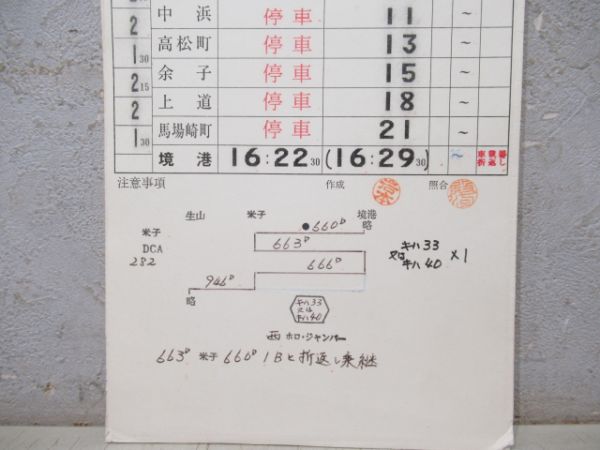 中浜 停車 11 ~
2
高松町 停車 13 ~
1 30
余子 停車 15 ~
2 15
上道 停車 18 ~
2
馬場崎町 停車 21 ~
1 30
境港 16:22 30 (16:29 30) ~
注意事項 作成 照合
生山 米子 境港
略
● 660D
米子
DCA
282
663D
666D
946D
略
キハ33
又は
キハ40
×1
キハ33
又は
キハ40
西 ホロ・ジャンパー
663D 米子 660D 1Bと折返し乗継